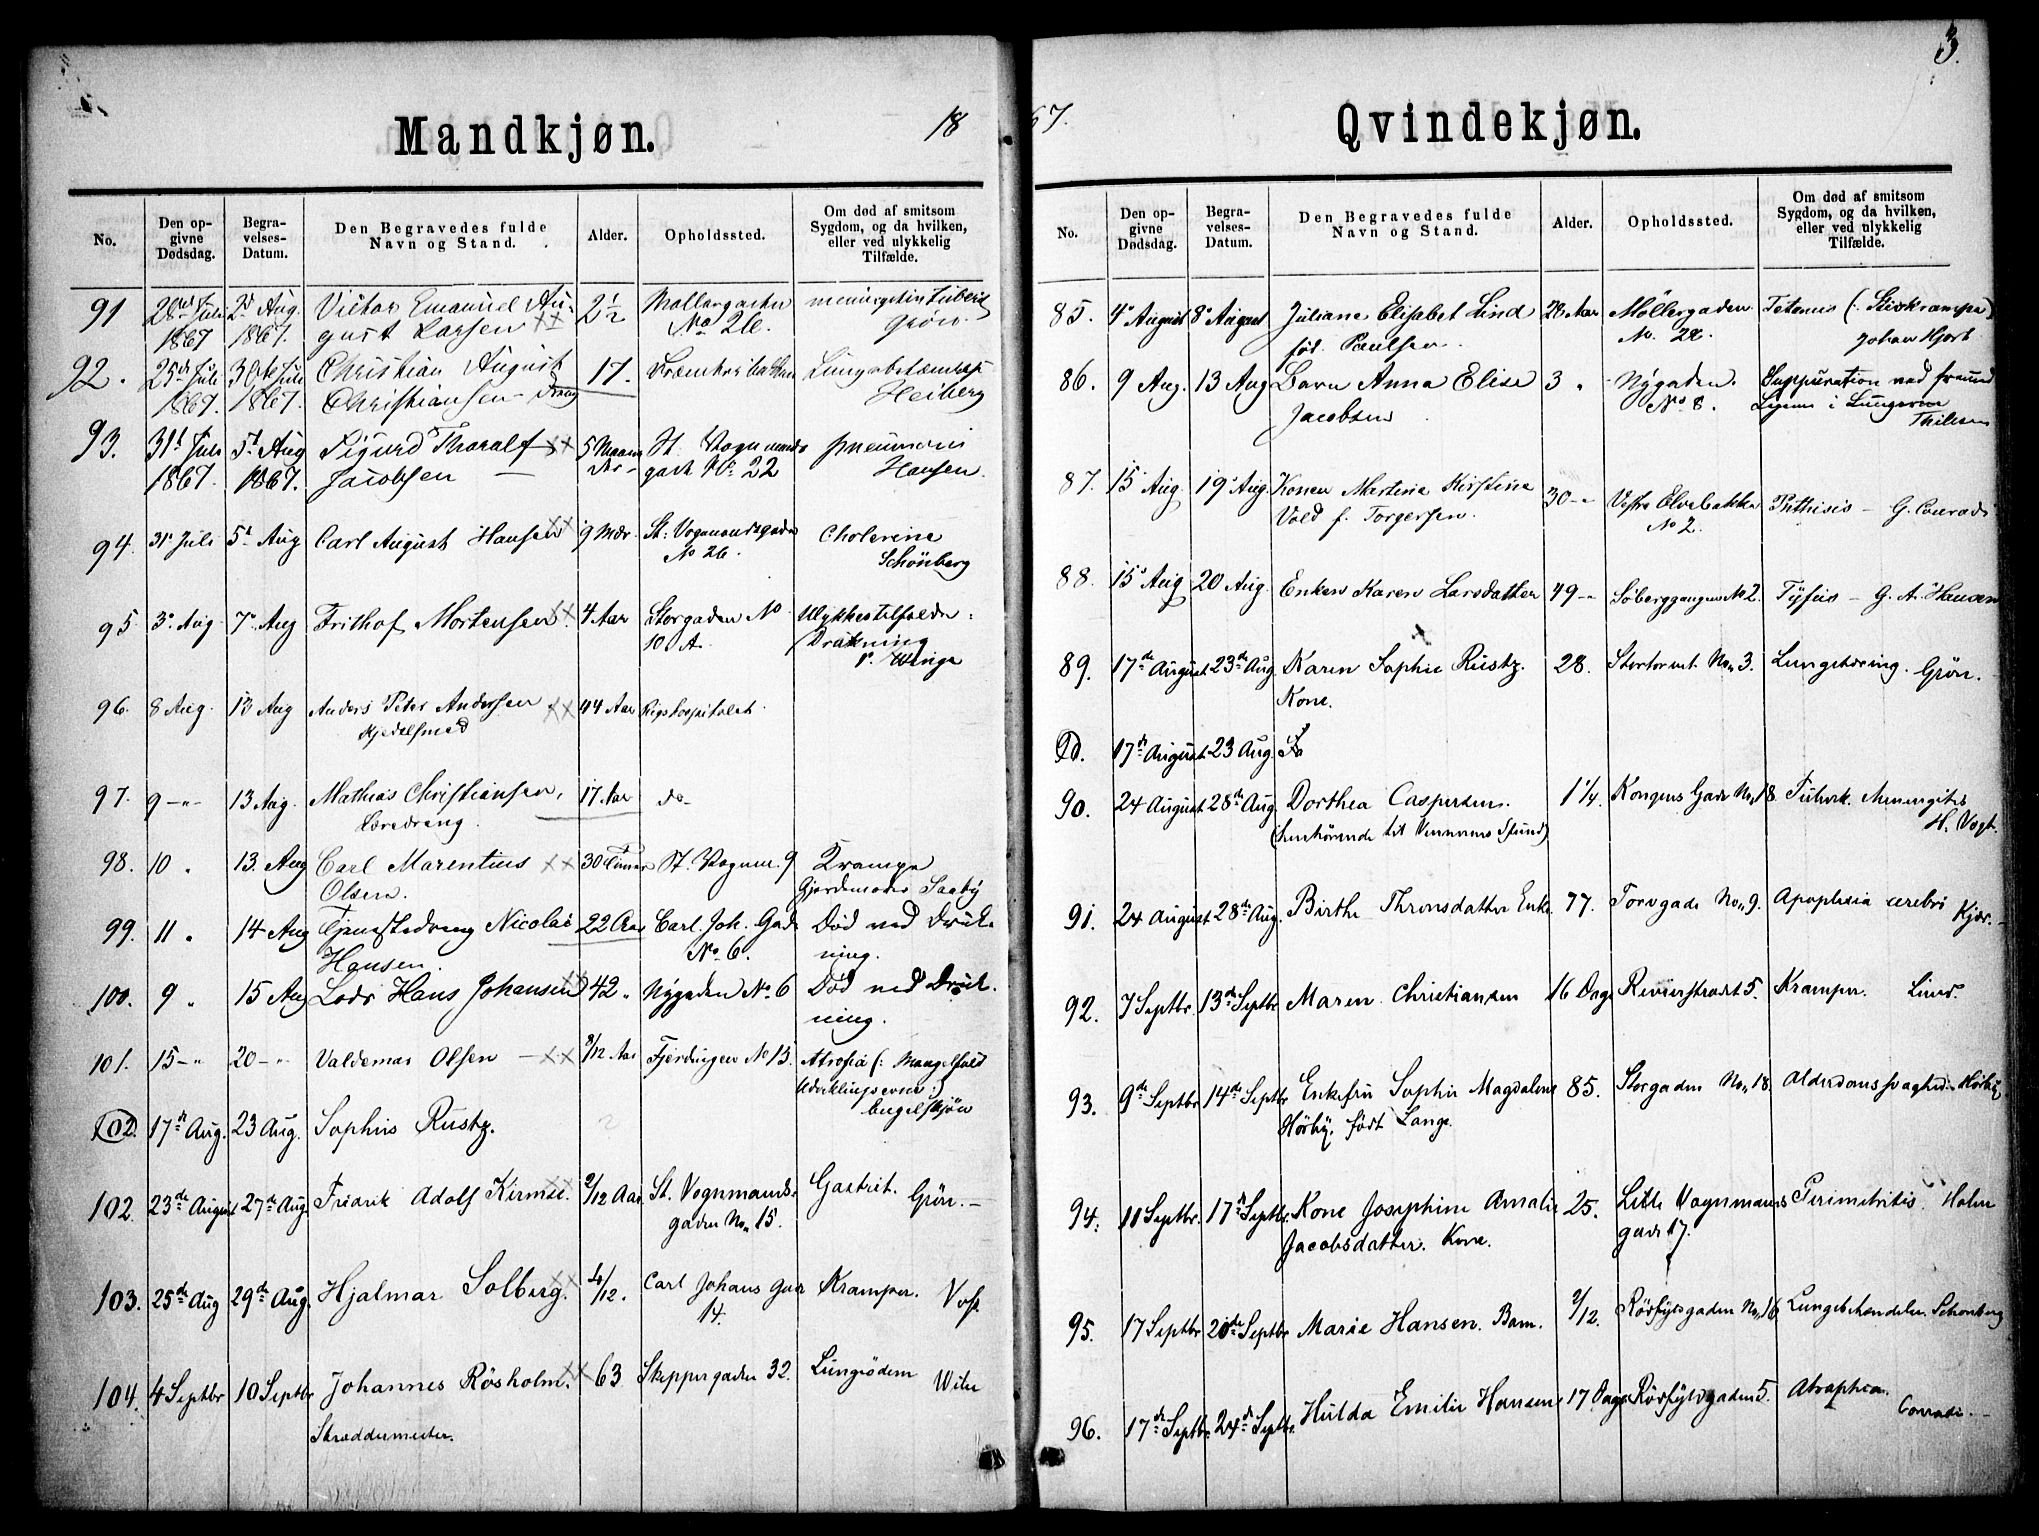 3.
Mandkjøn.
18
67.
Qvindekjøn.
No.
Den op-
givne
Dødsdag.
Begra-
velses-
Datum.
Den Begravedes fulde
Navn og Stand.
Alder.
Opholdssted.
Om død af smitsom
Sygdom, og da hvilken,
eller ved ulykkelig
Tilfælde.
91 28de Juli 2d Aug. Victor Emanuel Au- 2 1/2 Møllergaden
1867 1867. gust Larsen XX No 26. Grön.
92. 25de Juli 30te Juli Christian August 17.
1867. 1867. Christiansen Dreng Heiberg
93. 31t Juli 5t Aug Sigurd Thoralf XX 5 Maane St. Vognmands pneumoni
1867. 1867. Jacobsen — der gade No 22 Hansen.
94. 31t Juli 5t Aug Carl August Hansen XX 9 Mdr. St: Vognmandsgaden Cholerine
No 26. Schönberg
95 3d Aug 7de Aug Frithof Mortensen XX. 4 Aar Storgaden No Ulykkestilfælde:
10 A. Drukning
Winge
96. 8 Aug. 13 Aug Anders Peter Andersen XX 44 Aar Rigshospitalet
Kjedelsmed
97. 9 -"- 13 Aug. Mathias Christiansen, 17 Aar do-
Læredreng.
98. 10 " 13. Aug Carl Marentius XX 30 Timer St. Vognm. 9 Krampe
Olsen. Gjordemoder Saaby
99. 11 " 14 Aug Tjenestedreng Nicolai 22 Aar Carl. Joh. Gade Død ved Druk-
Hansen. No. 6. ning.
100. 9 " 15 Aug Lods Hans Johansen XX 42 " Nygaden No. 6 Død ved Druk-
ning.
101. 15-" 20-" Valdemar Olsen — XX 8/12 Aar Fjerdingen No 13 Atrofia (: Mangelfuld
Udviklingsevne:)
Engelskjön
102. 17de Aug. 23 Aug. Sophus Rustz.
102. 23de August 27de Aug. Fredrik Adolf Kirmse. XX 2/12 Aar. St. Vognmands- Gastrit. Grön. —
gaden No. 15.
103. 25de Aug 29de Aug. Hjalmar Solberg. XX 4/12. Carl Johans Gade Kramper. Voss
14.
104. 4 Septbr 10 Septbr Johannes Røsholm. XX 63 Skippergaden 32. Lungeödem
Skræddermester.
No.
Den op-
givne
Dødsdag.
Begra-
velses-
Datum.
Den Begravedes fulde
Navn og Stand.
Alder.
Opholdssted.
Om død af smitsom
Sygdom, og da hvilken,
eller ved ulykkelig
Tilfælde.
85. 4de August 8de August Juliane Elisabet Lind 28 Aar Möllergaden Tetanus (: Stivkrampe)
föd. Paulsen. No. 28. Johan Hjort
86. 9 Aug. 13 Aug Barn Anna Elise 3 " Nygaden. Suppuration ved fremmed
Jacobsen No 8. Legeme i Lungerne
Thilesen
87. 15 Aug. 19 Aug Konen Martine Kirstine 30-" Vestre Elvebakke Phthisis — G. Conradi
Vold f. Torgersen. No 2.
88. 15 Aug 20 Aug. Enken Karen Larsdatter 49-" Söberggangen No 2. Tyfus — G. A. Hansen
89. 17de August 23de Aug. Karen Sophie Rustz. 28. Stortorvet No. 3. Lungetæring. Grön.
Kone.
90. 17de August 23 Aug.
90. 24 August 28de Aug Dorthea Caspersen. 1 1/4. Kongens Gade No. 18 Tuberk. Meningitis
(henhörende til Vennernes Sfund) H. Vogt.
91. 24 August 28de Aug. Birthe Thronsdatter Enke 77. Torvgade No. 9. Apoplexia cerebri Kjær.-
92. 7 Septbr. 13de Septbr Maren Christiansen 16 Dage Revierstredet 5. Kramper.
93. 9de Septbr 14de Septbr Enkefru Sophie Magdalene 85. Storgaden No. 18. Alderdomssvaghed. Hörbÿ
Hörbÿ. födt Lange.
94. 11 Septbr. 17de Septbr. Kone Josephine Amalie 25. Lille Vognmands Perimetritis. Holm
Jacobsdatter. Kone. gade 17.
95. 17 Septbr 20de Septbr Marie Hansen. Barn. 2/12. Rörfylsgaden No. 16 Lungebetændelse. Schönberg
96. 17de Septbr. 24de Septbr. Hulda Emilie Hansen 17 Dage Rörfylsgaden 5. Atrophia.
Conradi. —